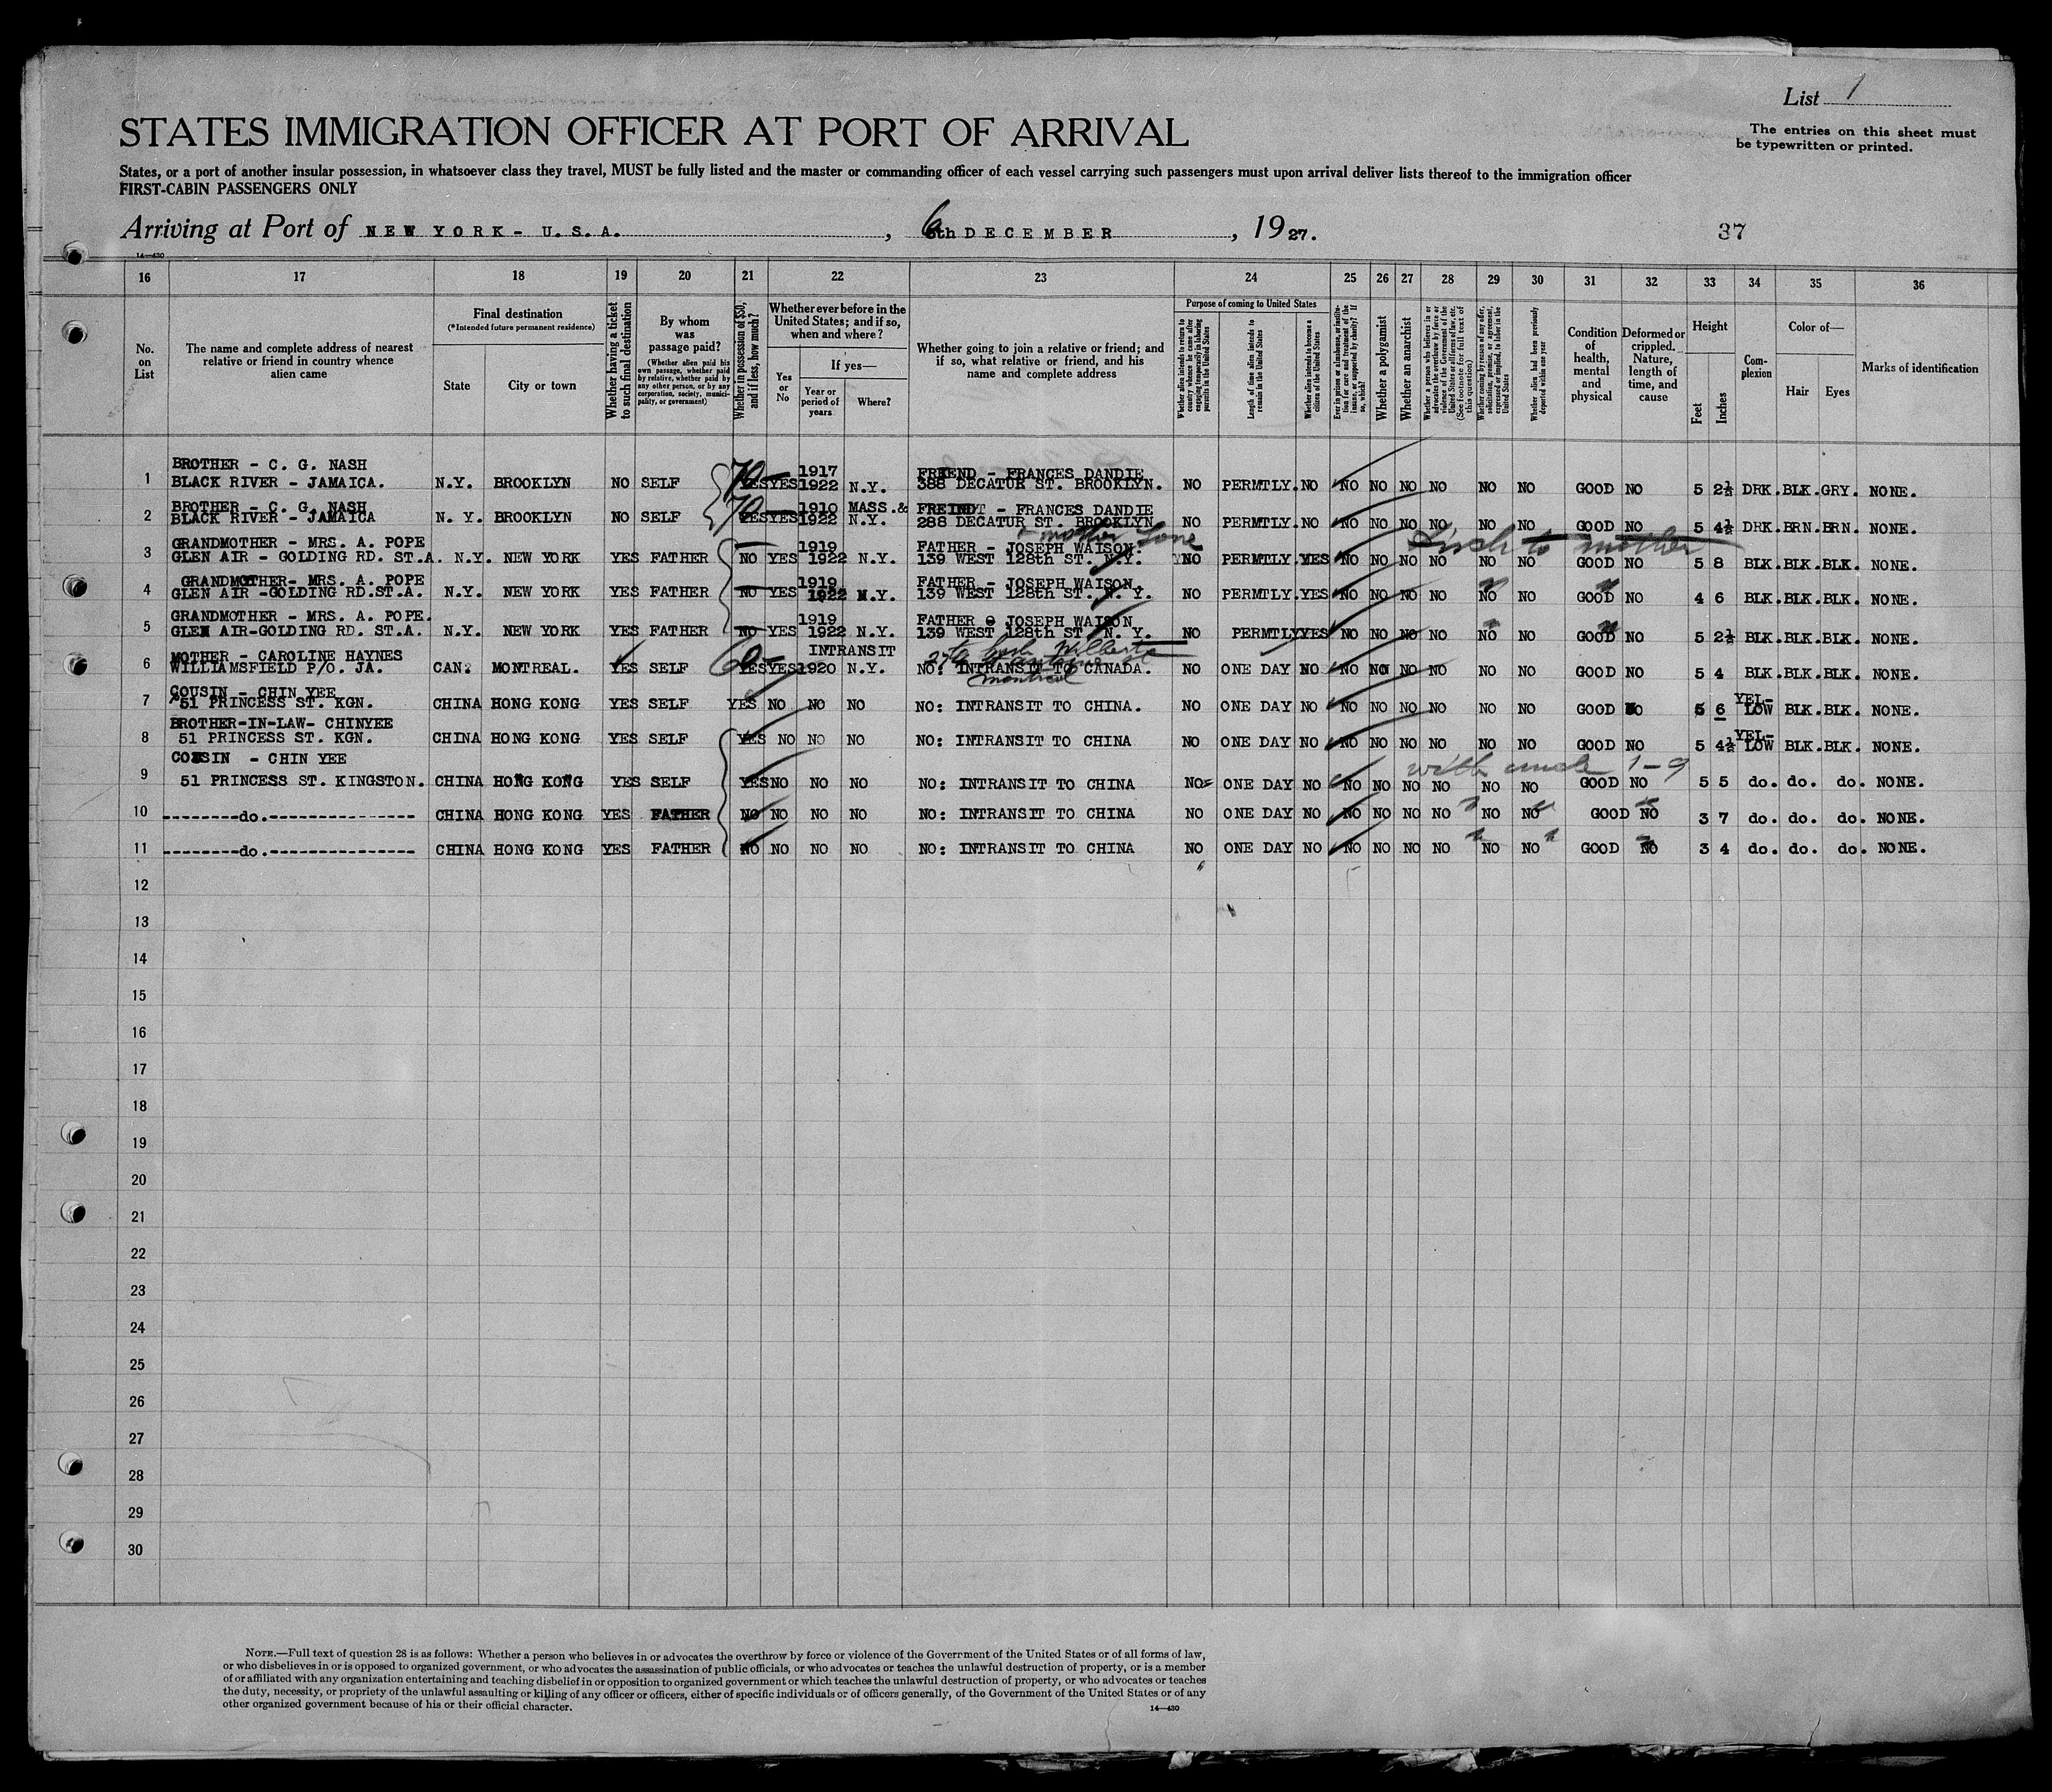 List 1
STATES IMMIGRATION OFFICER AT PORT OF ARRIVAL
The entries on this sheet must
be typewritten or printed.
States, or a port of another insular possession, in whatsoever class they travel, MUST be fully listed and the master or commanding officer of each vessel carrying such passengers must upon arrival deliver lists thereof to the immigration officer
FIRST-CABIN PASSENGERS ONLY
Arriving at Port of NEW YORK - U.S.A. , 6th DECEMBER , 1927.
37
14—430
16 17 18 19 20 21 22 23 24 25 26 27 28 29 30 31 32 33 34 35 36
No. on List
The name and complete address of nearest relative or friend in country whence alien came
Final destination
(*Intended future permanent residence)
State
City or town
Whether having a ticket to such final destination
By whom was passage paid?
(Whether alien paid his own passage, whether paid by relative, whether paid by any other person, or by any corporation, society, municipality, or government)
Whether in possession of $50, and if less, how much?
Whether ever before in the United States; and if so, when and where?
Yes or No
If yes—
Year or period of years
Where?
Whether going to join a relative or friend; and if so, what relative or friend, and his name and complete address
Purpose of coming to United States
Whether alien intends to return to country whence he came after engaging temporarily in laboring pursuits in the United States
Length of time alien intends to remain in the United States
Whether alien intends to become a citizen of the United States
Ever in prison or almshouse, or institution for care and treatment of the insane, or supported by charity? If so, which?
Whether a polygamist
Whether an anarchist
Whether a person who believes in or advocates the overthrow by force or violence of the Government of the United States or all forms of law, etc. (See footnote for full text of this question)
Whether coming by reason of any offer, solicitation, promise, or agreement, expressed or implied, to labor in the United States
Whether alien had been previously deported within one year
Condition of health, mental and physical
Deformed or crippled. Nature, length of time, and cause
Height
Feet
Inches
Complexion
Color of—
Hair
Eyes
Marks of identification
BROTHER - C. G. NASH 1917 FRIEND - FRANCES DANDIE
1 BLACK RIVER - JAMAICA. N.Y. BROOKLYN NO SELF 70 YES YES 1922 N.Y. 388 DECATUR ST. BROOKLYN. NO PERMTLY. NO NO NO NO NO NO NO GOOD NO 5 2½ DRK. BLK. GRY. NONE.
BROTHER - C. G. NASH 1910 MASS.& - FRANCES DANDIE
2 BLACK RIVER - JAMAICA N. Y. BROOKLYN NO SELF 70 YES YES 1922 N.Y. 288 DECATUR ST. BROOKLYN NO PERMTLY. NO NO NO NO NO NO NO GOOD NO 5 4½ DRK. BRN. BRN. NONE.
+ mother
GRANDMOTHER - MRS. A. POPE 1919 FATHER - JOSEPH WATSON. to mother
3 GLEN AIR - GOLDING RD. ST.A. N.Y. NEW YORK YES FATHER NO YES 1922 N.Y. 139 WEST 128th ST. N.Y. NO PERMTLY. YES NO NO NO NO NO NO GOOD NO 5 8 BLK. BLK. BLK. NONE.
GRANDMOTHER- MRS. A. POPE 1919 FATHER - JOSEPH WAISON.
4 GLEN AIR -GOLDING RD.ST.A. N.Y. NEW YORK YES FATHER NO YES 1922 N.Y. 139 WEST 128th ST. N. Y. NO PERMTLY. YES NO NO NO NO NO NO GOOD NO 4 6 BLK. BLK. BLK. NONE.
GRANDMOTHER - MRS. A. POPE. 1919 FATHER JOSEPH WAISON
5 GLEN AIR-GOLDING RD. ST.A. N.Y. NEW YORK YES FATHER NO YES 1922 N.Y. 139 WEST 128th ST N. Y. NO PERMTLY YES NO NO NO NO NO NO GOOD NO 5 2½ BLK. BLK. BLK. NONE.
MOTHER - CAROLINE HAYNES INTRANSIT
6 WILLIAMSFIELD P/O. JA. CAN. MONTREAL. YES SELF 60 YES YES 1920 N.Y. NO: INTRANSIT TO CANADA. NO ONE DAY NO NO NO NO NO NO NO GOOD NO 5 4 BLK. BLK. BLK. NONE.
montreal
COUSIN - CHIN YEE YEL-
7 51 PRINCESS ST. KGN. CHINA HONG KONG YES SELF YES NO NO NO NO: INTRANSIT TO CHINA. NO ONE DAY NO NO NO NO NO NO NO GOOD NO 5 6 LOW BLK. BLK. NONE.
BROTHER-IN-LAW- CHINYEE YEL-
8 51 PRINCESS ST. KGN. CHINA HONG KONG YES SELF YES NO NO NO NO: INTRANSIT TO CHINA NO ONE DAY NO NO NO NO NO NO NO GOOD NO 5 4½ LOW BLK. BLK. NONE.
COUSIN - CHIN YEE with uncle 1-9
9 51 PRINCESS ST. KINGSTON. CHINA HONG KONG YES SELF YES NO NO NO NO: INTRANSIT TO CHINA NO ONE DAY NO NO NO NO NO NO NO GOOD NO 5 5 do. do. do. NONE.
10 --------do.--------------- CHINA HONG KONG YES FATHER NO NO NO NO NO: INTRANSIT TO CHINA NO ONE DAY NO NO NO NO NO NO NO GOOD NO 3 7 do. do. do. NONE.
11 --------do.--------------- CHINA HONG KONG YES FATHER NO NO NO NO NO: INTRANSIT TO CHINA NO ONE DAY NO NO NO NO NO NO NO GOOD NO 3 4 do. do. do. NONE.
12
13
14
15
16
17
18
19
20
21
22
23
24
25
26
27
28
29
30
NOTE.—Full text of question 28 is as follows: Whether a person who believes in or advocates the overthrow by force or violence of the Government of the United States or of all forms of law,
or who disbelieves in or is opposed to organized government, or who advocates the assassination of public officials, or who advocates or teaches the unlawful destruction of property, or is a member
of or affiliated with any organization entertaining and teaching disbelief in or opposition to organized government or which teaches the unlawful destruction of property, or who advocates or teaches
the duty, necessity, or propriety of the unlawful assaulting or killing of any officer or officers, either of specific individuals or of officers generally, of the Government of the United States or of any
other organized government because of his or their official character.
14—430